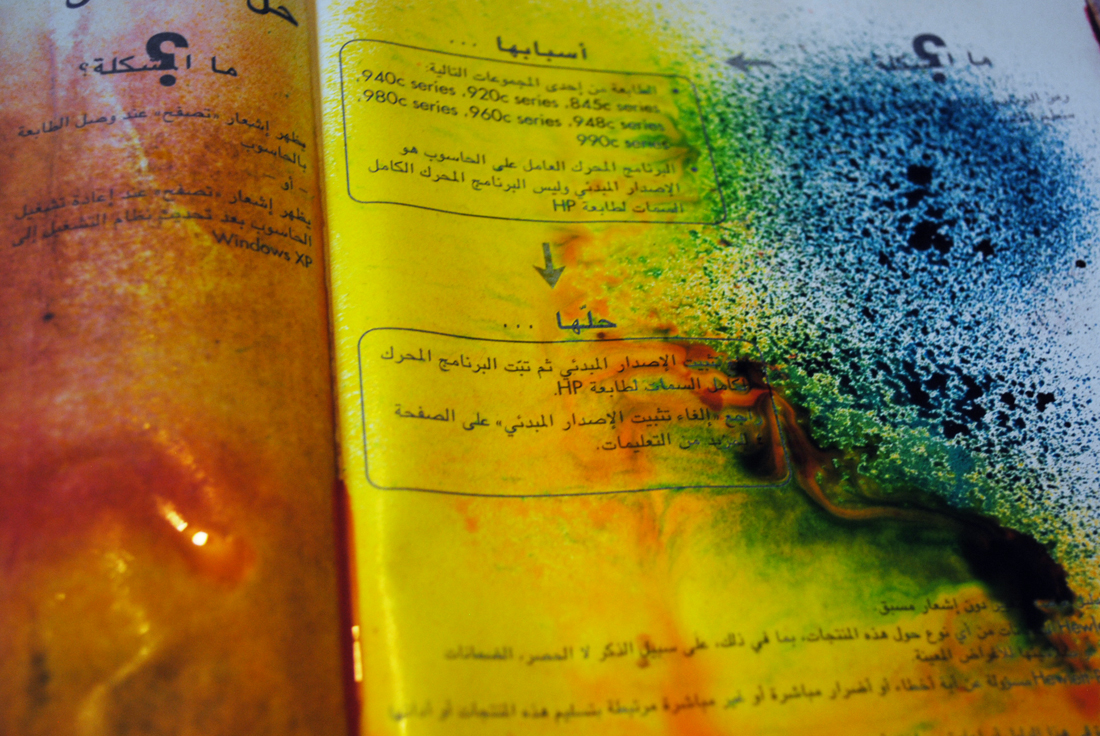 ما المشكلة؟
أسبابها ...
• الطابعة من إحدى المجموعات التالية:
940c series ،920c series ،845c series،
980c series ،960c series ،948c series،
990c series
• البرنامج المحرك العامل على الحاسوب هو
الإصدار المبدئي وليس البرنامج المحرك الكامل
السمات لطابعة HP
حلّها ...
تثبيت الإصدار المبدئي ثم ثبّت البرنامج المحرك
بكامل السمات لطابعة HP.
«إلغاء تثبيت الإصدار المبدئي» على الصفحة
لمزيد من التعليمات.
دون إشعار مسبق.
من أي نوع حول هذه المنتجات، بما في ذلك، على سبيل الذكر لا الحصر، الضمانات
للأغراض المعينة
مسؤولة عن أية أخطاء أو أضرار مباشرة أو غير مباشرة مرتبطة بتسليم هذه المنتجات أو أدائها
حل
ما المشكلة؟
يظهر إشعار «تصفح» عند وصل الطابعة
بالحاسوب
– أو –
يظهر إشعار «تصفح» عند إعادة تشغيل
الحاسوب بعد تحديث نظام التشغيل إلى
Windows XP